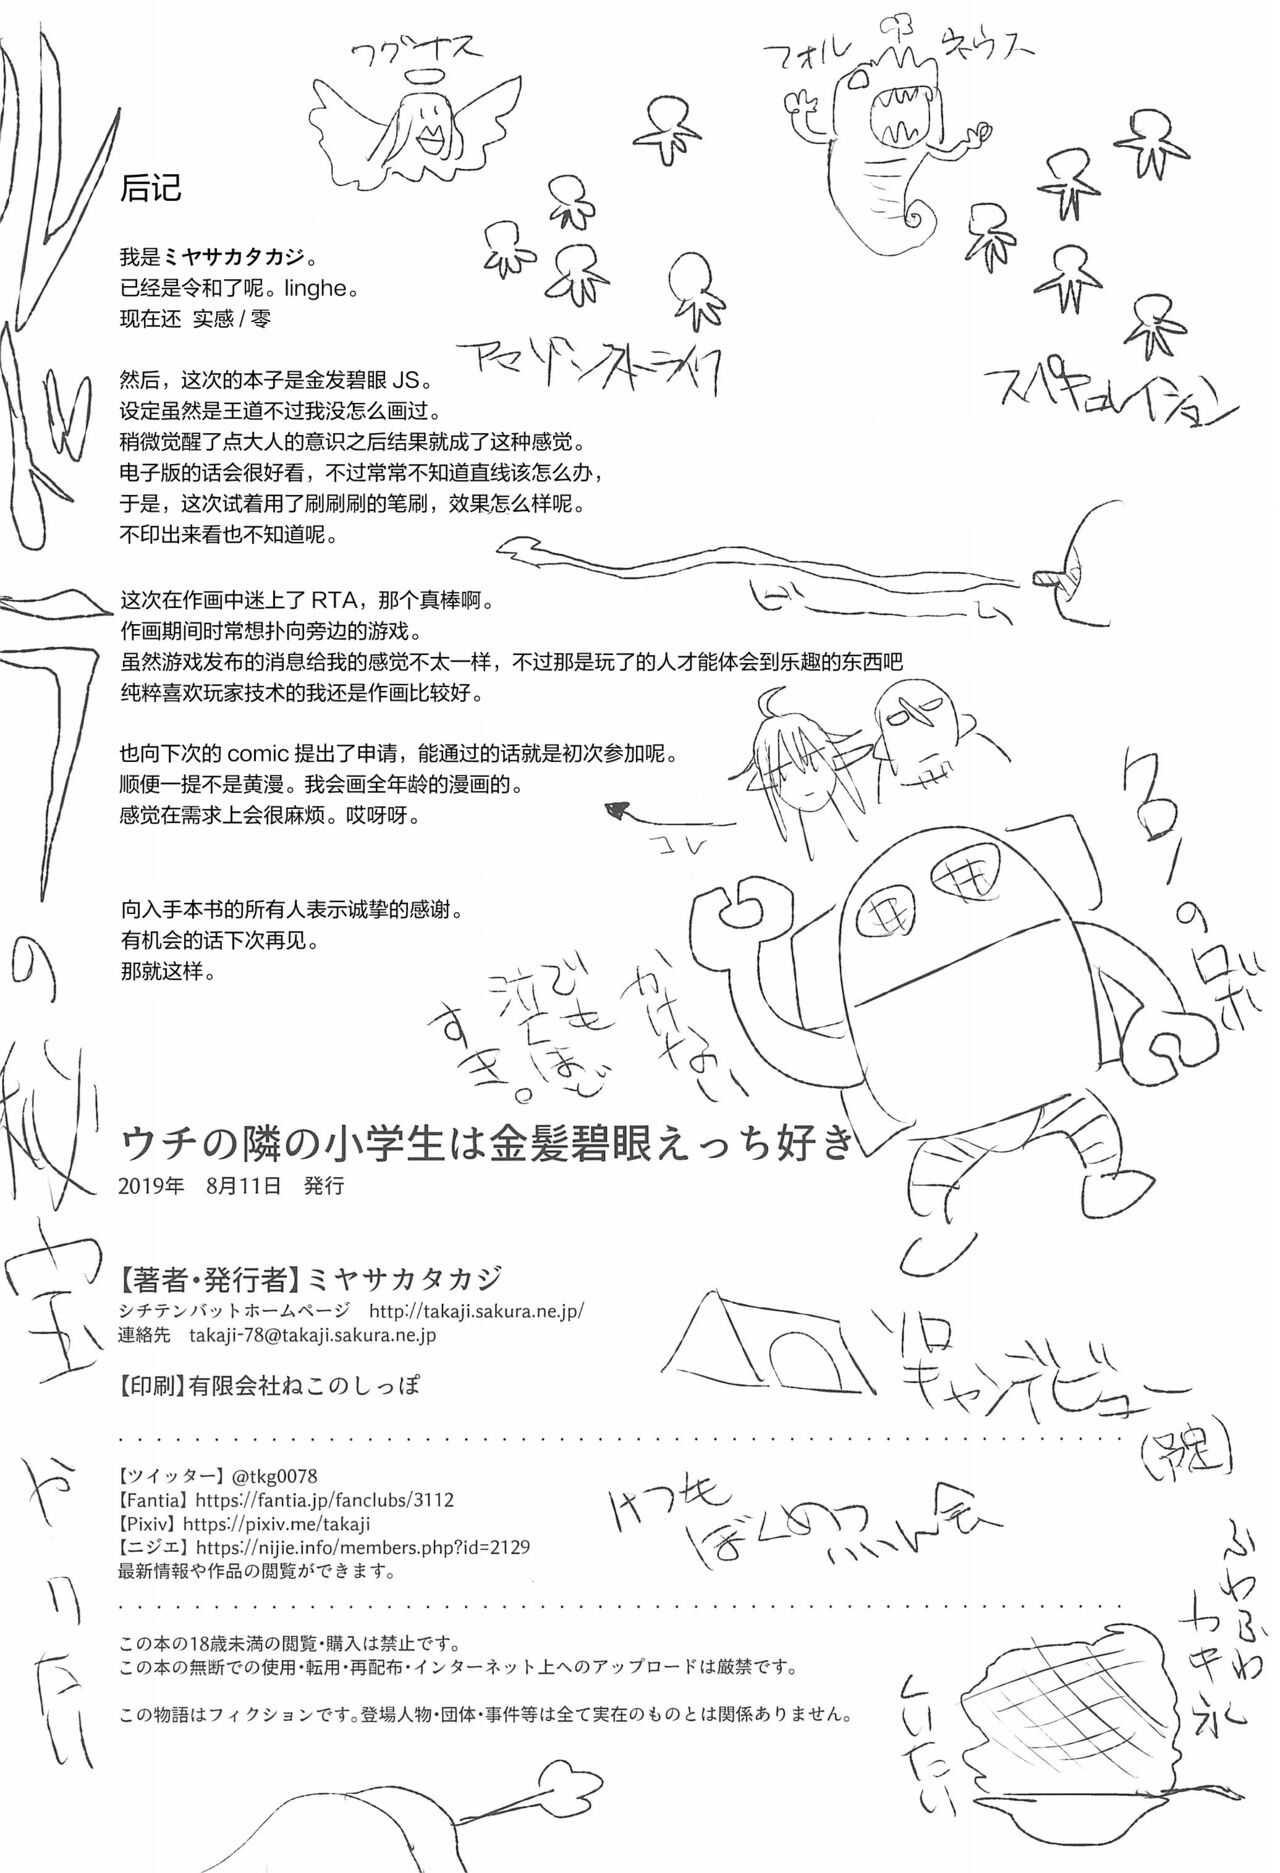 ワグナス
フォルネウス
后记
我是ミヤサカタカジ。
已经是令和了呢。linghe。
现在还 实感 / 零
アマゾンストライク
スパキュレイション
然后，这次的本子是金发碧眼 JS。
设定虽然是王道不过我没怎么画过。
稍微觉醒了点大人的意识之后结果就成了这种感觉。
电子版的话会很好看，不过常常不知道直线该怎么办，
于是，这次试着用了刷刷刷的笔刷，效果怎么样呢。
不印出来看也不知道呢。
这次在作画中迷上了 RTA，那个真棒啊。
作画期间时常想扑向旁边的游戏。
虽然游戏发布的消息给我的感觉不太一样，不过那是玩了的人才能体会到乐趣的东西吧
纯粹喜欢玩家技术的我还是作画比较好。
也向下次的 comic 提出了申请，能通过的话就是初次参加呢。
顺便一提不是黄漫。我会画全年龄的漫画的。
感觉在需求上会很麻烦。哎呀呀。
コレ
クローのロボ
向入手本书的所有人表示诚挚的感谢。
有机会的话下次再见。
那就这样。
かけない
でも
泣くほど
すき。
ウチの隣の小学生は金髪碧眼えっち好き
2019年　8月11日　発行
【著者・発行者】ミヤサカタカジ
シチテンバットホームページ　http://takaji.sakura.ne.jp/
連絡先　takaji-78@takaji.sakura.ne.jp
【印刷】有限会社ねこのしっぽ
ソロ
キャンデビュー
(予定)
【ツイッター】@tkg0078
【Fantia】https://fantia.jp/fanclubs/3112
【Pixiv】https://pixiv.me/takaji
【ニジエ】https://nijie.info/members.php?id=2129
最新情報や作品の閲覧ができます。
この本の18歳未満の閲覧・購入は禁止です。
この本の無断での使用・転用・再配布・インターネット上へのアップロードは厳禁です。
この物語はフィクションです。登場人物・団体・事件等は全て実在のものとは関係ありません。
ふわふわ
カキ氷
くいたい
の秘宝やりたい